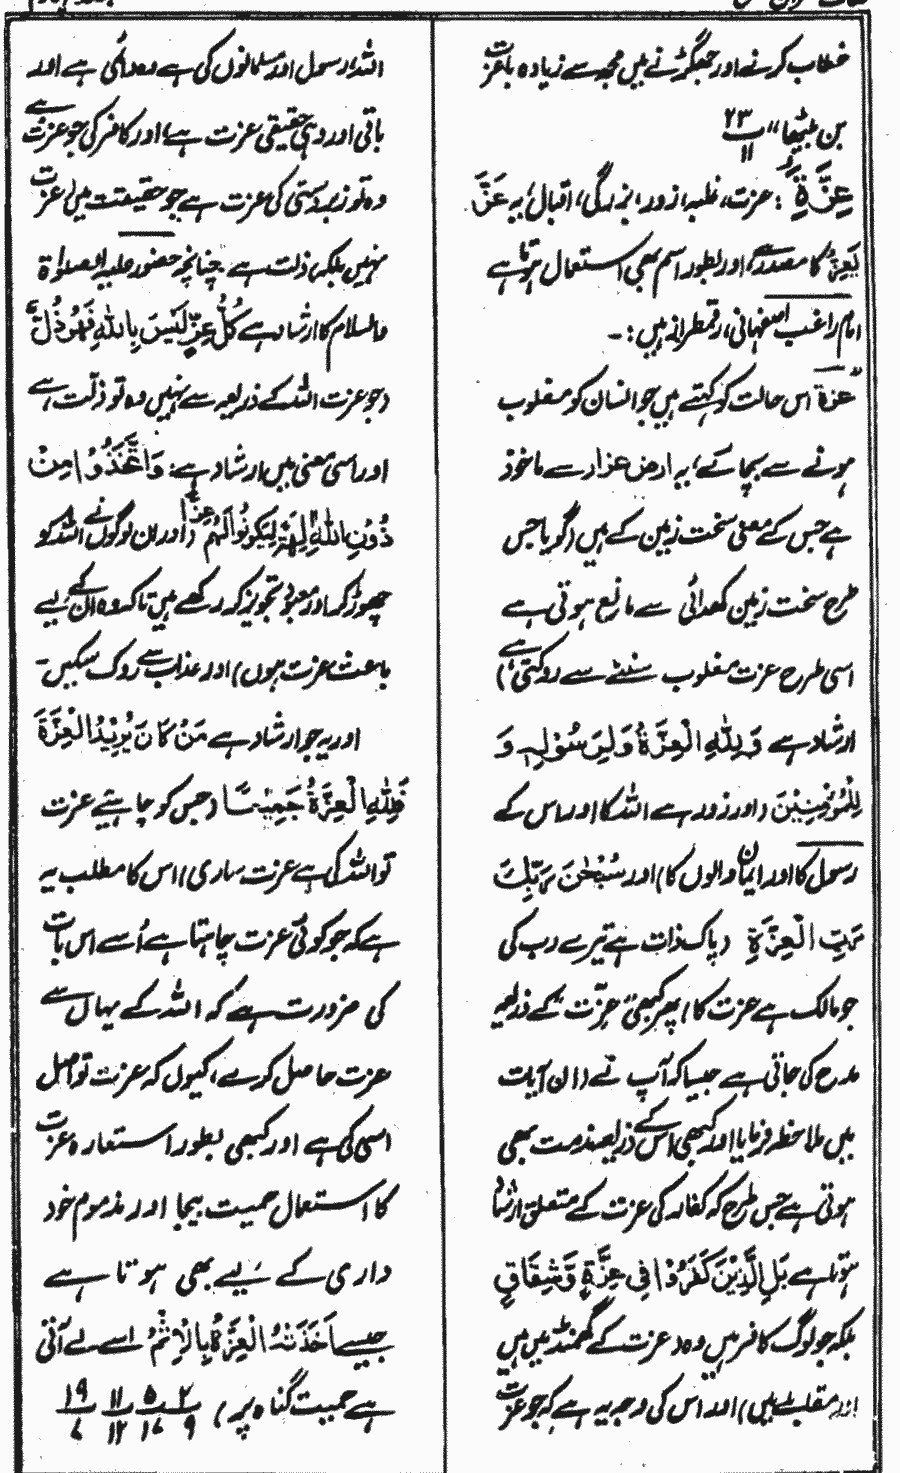 خطاب کرنے اور جھگڑنے میں مجھ سے زیادہ باعزت
بن بیٹھا" ۲۳/۱۱
عِزَّةٍ : عزت، غلبہ، زور، بزرگی، اقبال، یہ عَزَّ
یَعِزُّ کا مصدر ہے، اور بطور اسم بھی استعمال ہوتا ہے
امام راغب اصفہانی، رقمطراز ہیں :-
عزة اس حالت کو کہتے ہیں جو انسان کو مغلوب
ہونے سے بچائے، یہ ارض عزاز سے ماخوذ
ہے جس کے معنی سخت زمین کے ہیں (گویا جس
طرح سخت زمین کھدائی سے مانع ہوتی ہے
اسی طرح عزت مغلوب ہونے سے روکتی ہے)
ارشاد ہے وَلِلّٰهِ الْعِزَّةُ وَلِرَسُوْلِهٖ وَ
لِلْمُؤْمِنِيْنَ (اور زور ہے اللہ کا اور اس کے
رسول کا اور ایمان والوں کا) اور سُبْحٰنَ رَبِّكَ
رَبِّ الْعِزَّةِ (پاک ذات ہے تیرے رب کی
جو مالک ہے عزت کا) پھر کبھی عزّت کے ذریعہ
مدح کی جاتی ہے جیسا کہ آپ نے (ان آیات
میں ملاحظہ فرمایا) اور کبھی اس کے ذریعہ مذمت بھی
ہوتی ہے جس طرح کہ کفار کی عزت کے متعلق ارشاد
ہوتا ہے بَلِ الَّذِيْنَ كَفَرُوْا فِى عِزَّةٍ وَّشِقَاقٍ
بلکہ جو لوگ کافر ہیں وہ (عزت کے گھمنڈ میں ہیں
اور مقابلے میں) اور اس کی وجہ یہ ہے کہ جو عزت
اللہ، رسول اور مسلمانوں کی ہے وہ دائمی ہے اور
باقی اور وہی حقیقی عزت ہے، اور کافر کی جو عزت ہے
وہ تو زبردستی کی عزت ہے جو حقیقت میں عزت
نہیں بلکہ ذلت ہے۔ چنانچہ حضور علیہ الصلوٰة
والسلام کا ارشاد ہے كُلُّ عِزٍّ لَيْسَ بِاللّٰهِ فَهُوَ ذُلٌّ
(جو عزت اللہ کے ذریعہ سے نہیں وہ تو ذلّت ہے
اور اسی معنی میں ارشاد ہے: وَاتَّخَذُوْا مِنْ
دُوْنِ اللّٰهِ اٰلِهَةً لِّيَكُوْنُوْا لَهُمْ عِزًّا (اور ان لوگوں نے اللہ کو
چھوڑ کر اور معبود تجویز کر رکھے ہیں تاکہ وہ ان کے لیے
باعث عزت ہوں) اور عذاب سے روک سکیں۔
اور یہ جو ارشاد ہے مَنْ كَانَ يُرِيْدُ الْعِزَّةَ
فَلِلّٰهِ الْعِزَّةُ جَمِيْعًا (جس کو چاہیے عزت
تو اللہ کی ہے عزت ساری) اس کا مطلب یہ
ہے کہ جو کوئی عزت چاہتا ہے اُسے اس بات
کی ضرورت ہے کہ اللہ کے یہاں سے
عزت حاصل کرے، کیوں کہ عزت تو اصل
اسی کی ہے اور کبھی بطور استعارہ عزت
کا استعمال حمیت بیجا اور مذموم خود
داری کے لیے بھی ہوتا ہے
جیسے اَخَذَتْهُ الْعِزَّةُ بِالْاِثْمِ اسے لے آتی
ہے حمیت گناہ پر) ۲/۹ ۵/۱۷ ۱۱/۱۲ ۱۹/۷